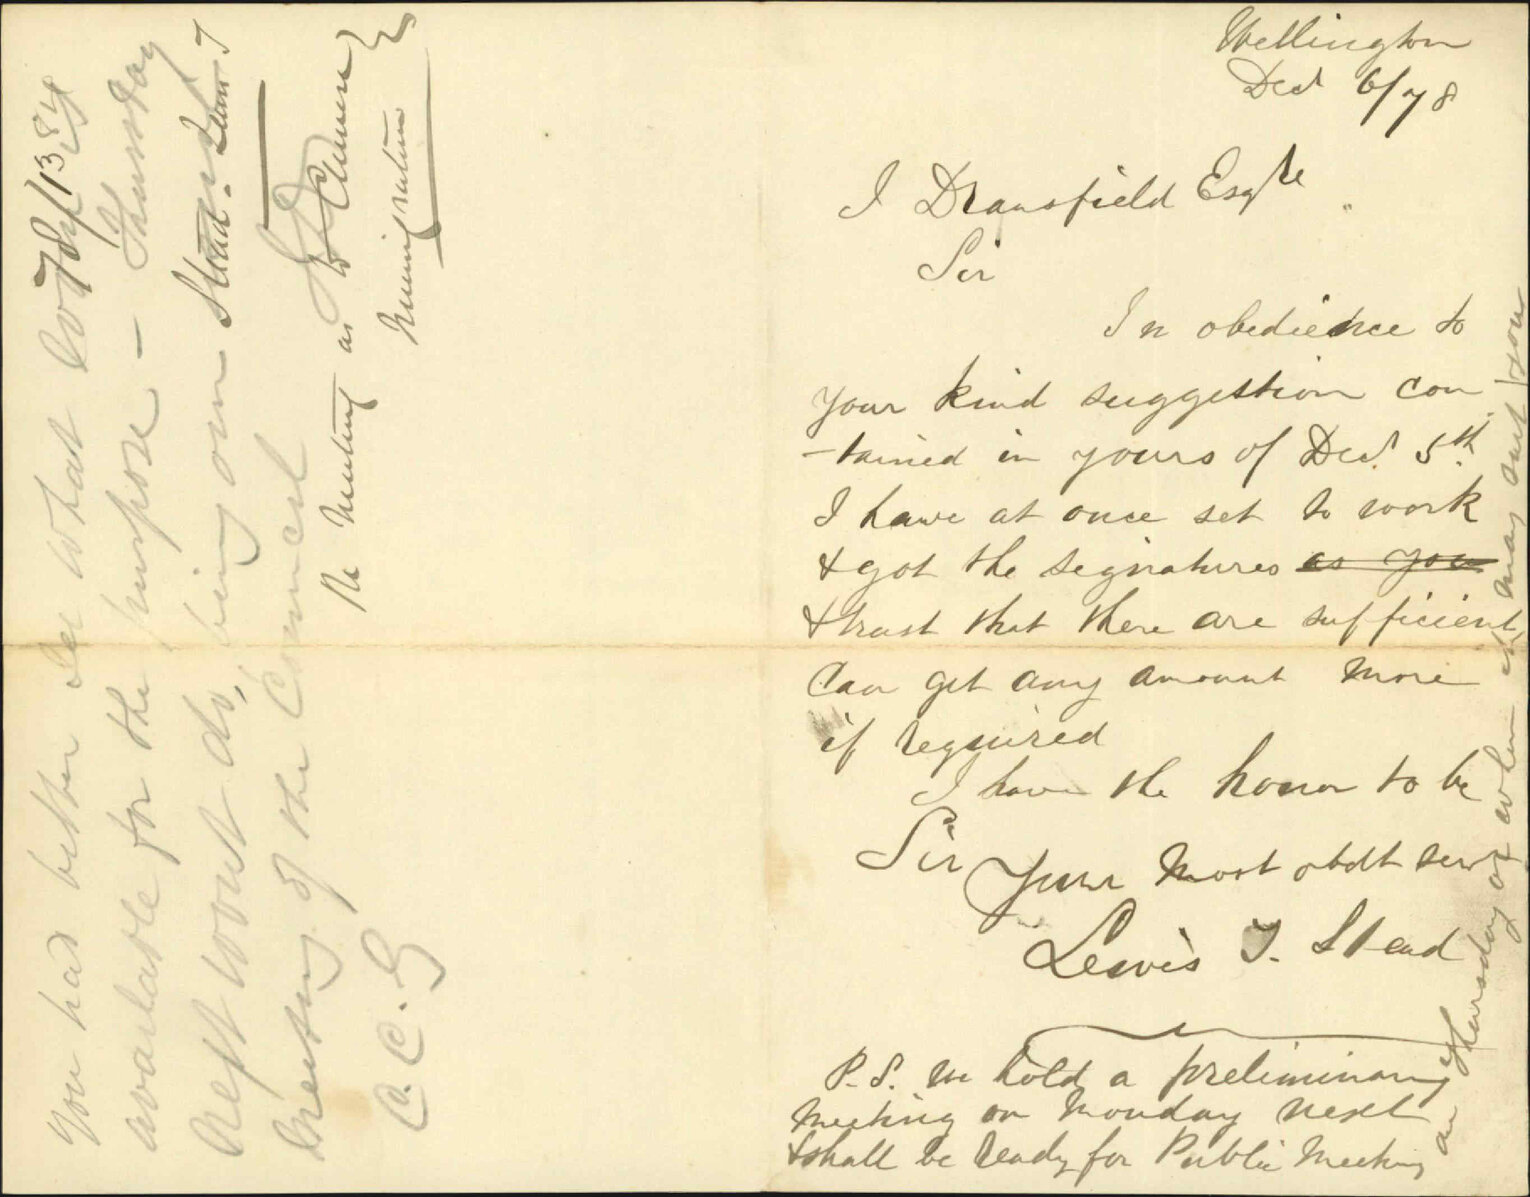 Wellington
Decr 6/78
J Dransfield Esqre
Sir
In obedience to
your kind suggestion con
-tained in yours of Decr 5th
I have at once set to work
& got the signatures as you
& trust that there are sufficient
Can get any amount more
if required
I have the honor to be
Sir
Your most obdt servt
Lewis T. Stead
P.S. We hold a preliminary
meeting on Monday next
& shall be ready for Public Meeting
on Thursday or when it may suit you
78/1384
Stead. Lewis T
Re Meeting as to Chinese
Immigration
You had better see what
available for the purpose – Thursday
next wont do, being our
meeting of the Council